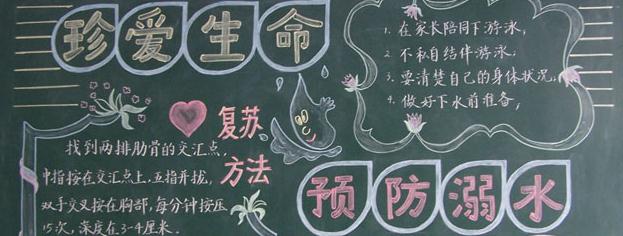 珍爱生命
1. 在家长陪同下游泳,
2. 不私自结伴游泳,
3. 要清楚自己的身体状况,
4. 做好下水前准备,
复苏
方法
找到两排肋骨的交汇点,
中指按在交汇点上,五指并拢,
双手交叉按在胸部,每分钟按压
15次,深度在3-4厘米.
预防溺水